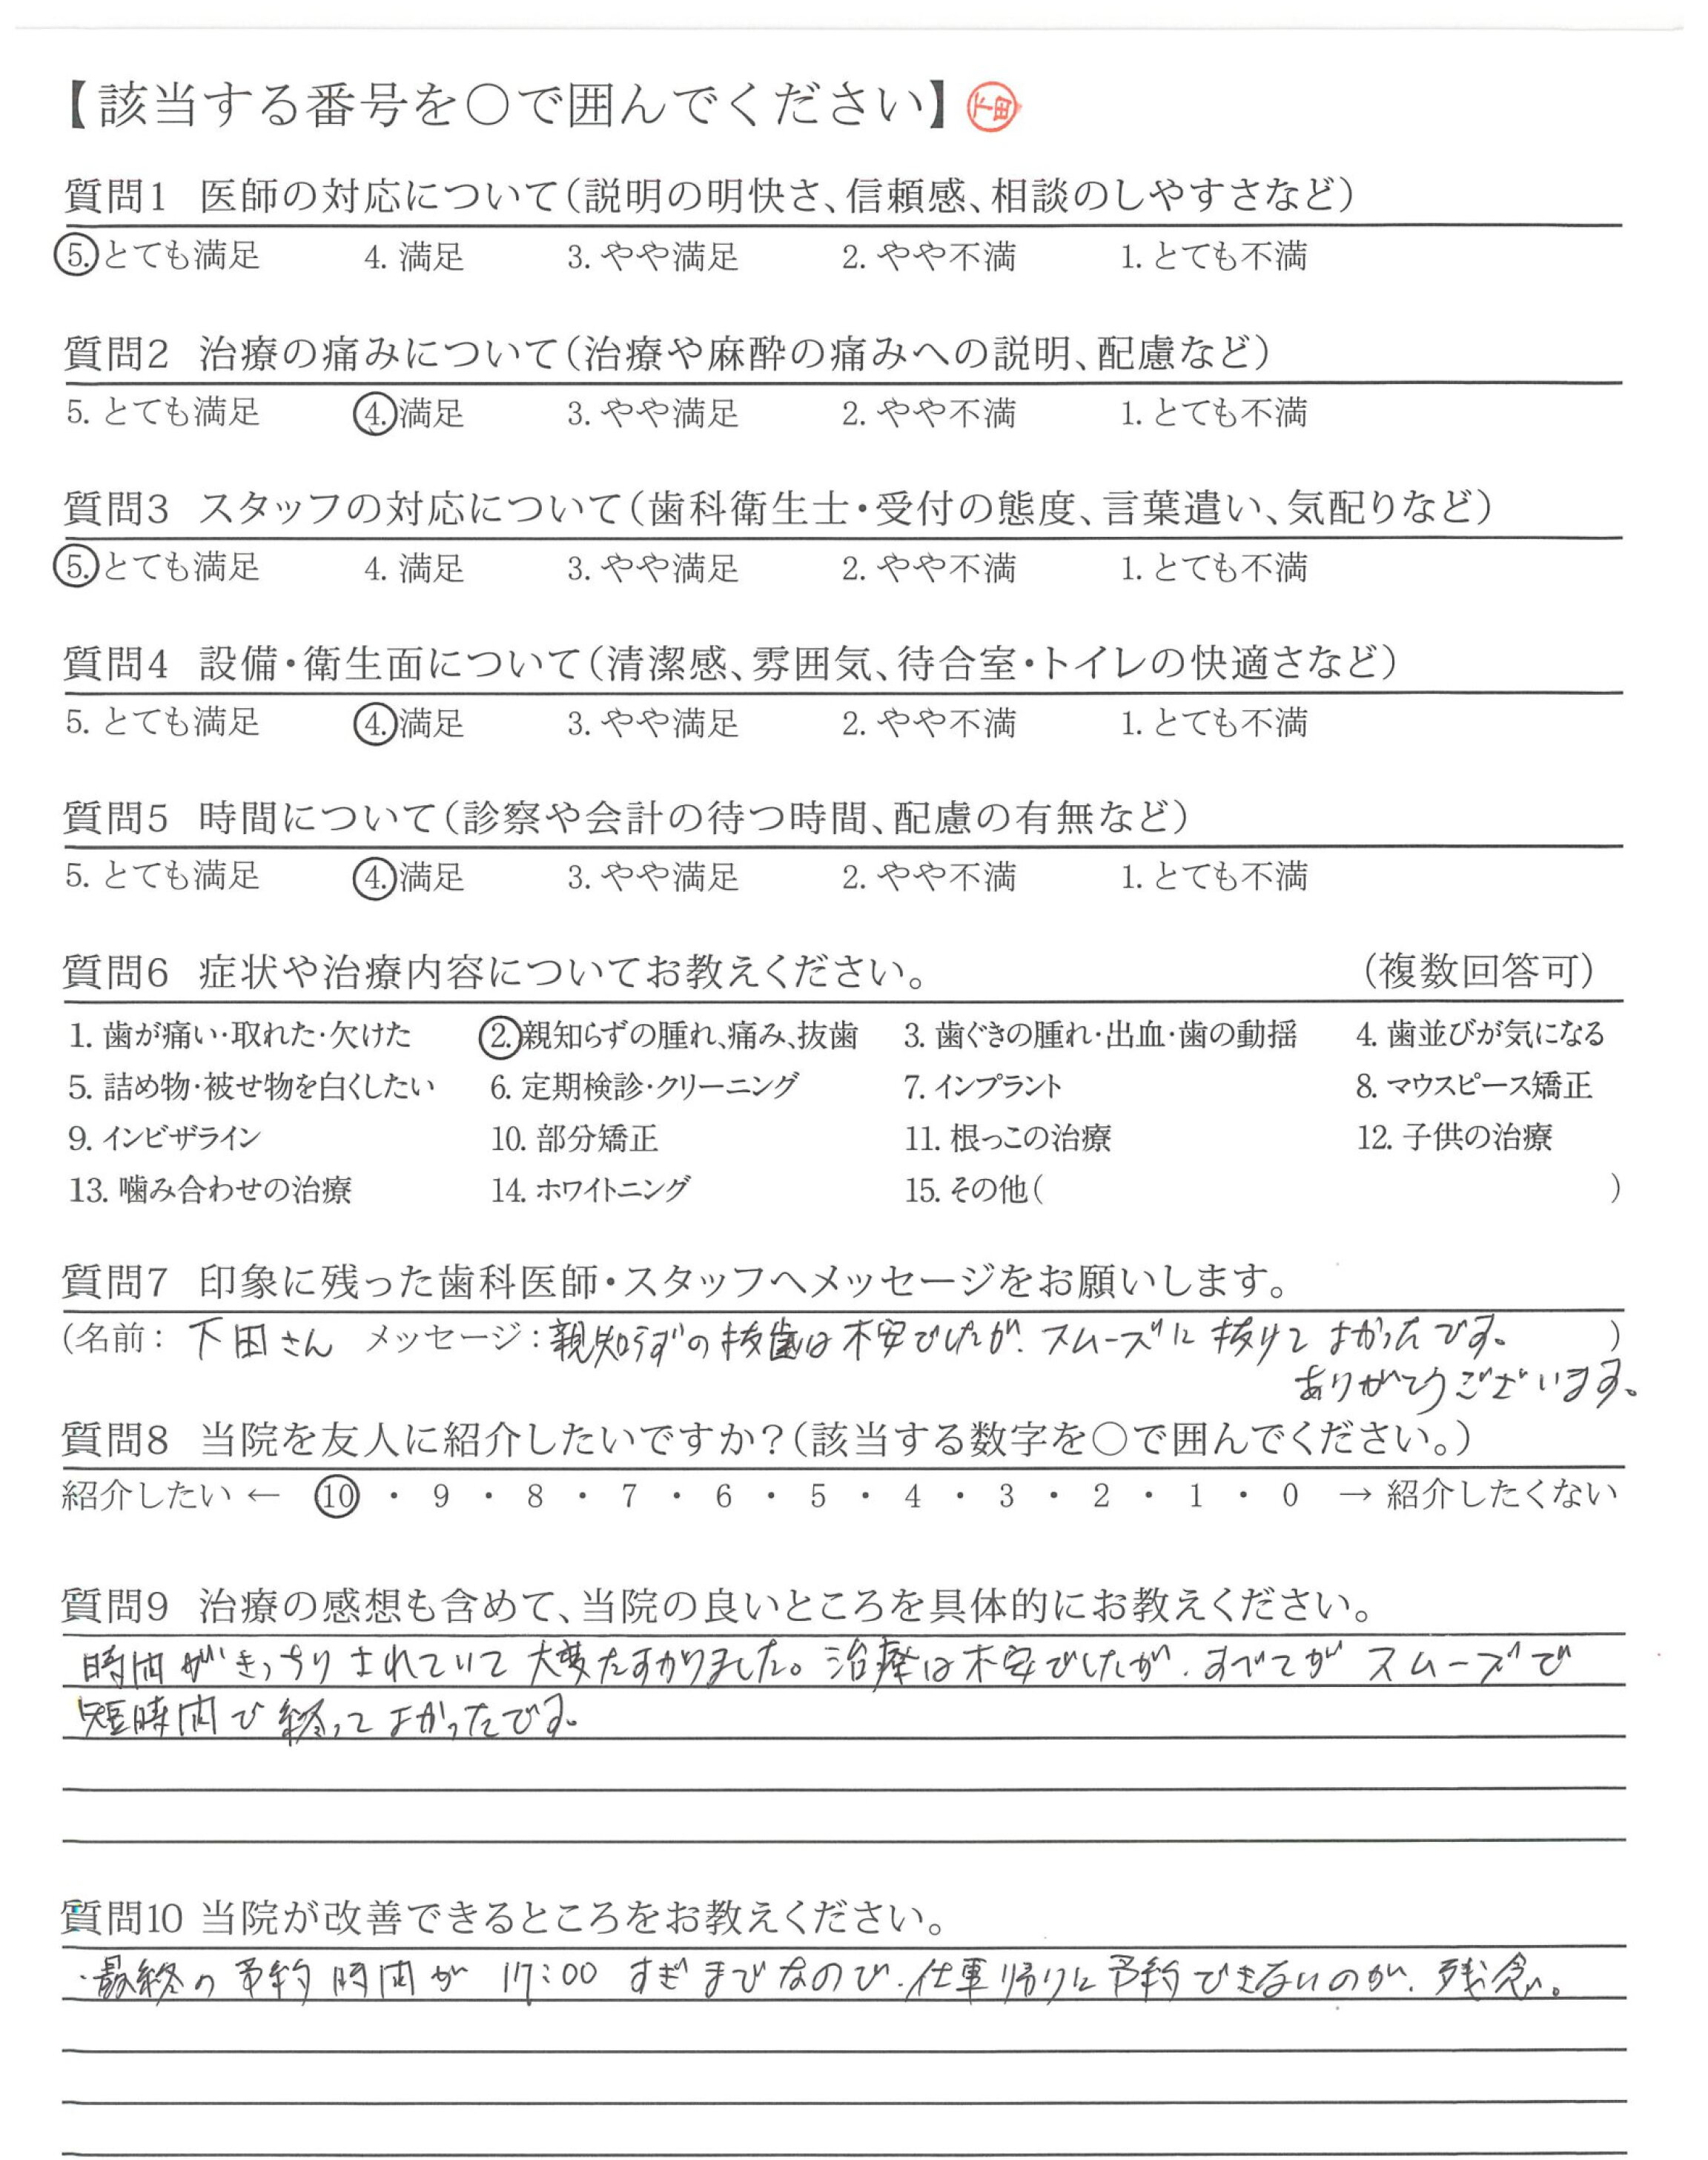 【該当する番号を○で囲んでください】 下田
質問1 医師の対応について(説明の明快さ、信頼感、相談のしやすさなど)
5. とても満足 4. 満足 3. やや満足 2. やや不満 1. とても不満
質問2 治療の痛みについて(治療や麻酔の痛みへの説明、配慮など)
5. とても満足 4. 満足 3. やや満足 2. やや不満 1. とても不満
質問3 スタッフの対応について(歯科衛生士・受付の態度、言葉遣い、気配りなど)
5. とても満足 4. 満足 3. やや満足 2. やや不満 1. とても不満
質問4 設備・衛生面について(清潔感、雰囲気、待合室・トイレの快適さなど)
5. とても満足 4. 満足 3. やや満足 2. やや不満 1. とても不満
質問5 時間について(診察や会計の待つ時間、配慮の有無など)
5. とても満足 4. 満足 3. やや満足 2. やや不満 1. とても不満
質問6 症状や治療内容についてお教えください。 (複数回答可)
1. 歯が痛い・取れた・欠けた 2. 親知らずの腫れ、痛み、抜歯 3. 歯ぐきの腫れ・出血・歯の動揺 4. 歯並びが気になる
5. 詰め物・被せ物を白くしたい 6. 定期検診・クリーニング 7. インプラント 8. マウスピース矯正
9. インビザライン 10. 部分矯正 11. 根っこの治療 12. 子供の治療
13. 噛み合わせの治療 14. ホワイトニング 15. その他( )
質問7 印象に残った歯科医師・スタッフへメッセージをお願いします。
(名前: 下田さん メッセージ: 親知らずの抜歯は不安でしたが、スムーズに抜けてよかったです。 )
ありがとうございます。
質問8 当院を友人に紹介したいですか?(該当する数字を○で囲んでください。)
紹介したい ← 10 ・ 9 ・ 8 ・ 7 ・ 6 ・ 5 ・ 4 ・ 3 ・ 2 ・ 1 ・ 0 → 紹介したくない
質問9 治療の感想も含めて、当院の良いところを具体的にお教えください。
時間がきっちりされていて大変たすかりました。治療は不安でしたが、すべてがスムーズで
短時間で終ってよかったです。
質問10 当院が改善できるところをお教えください。
・最終の予約時間が 17:00 すぎまでなので、仕事帰りに予約できないのが、残念。